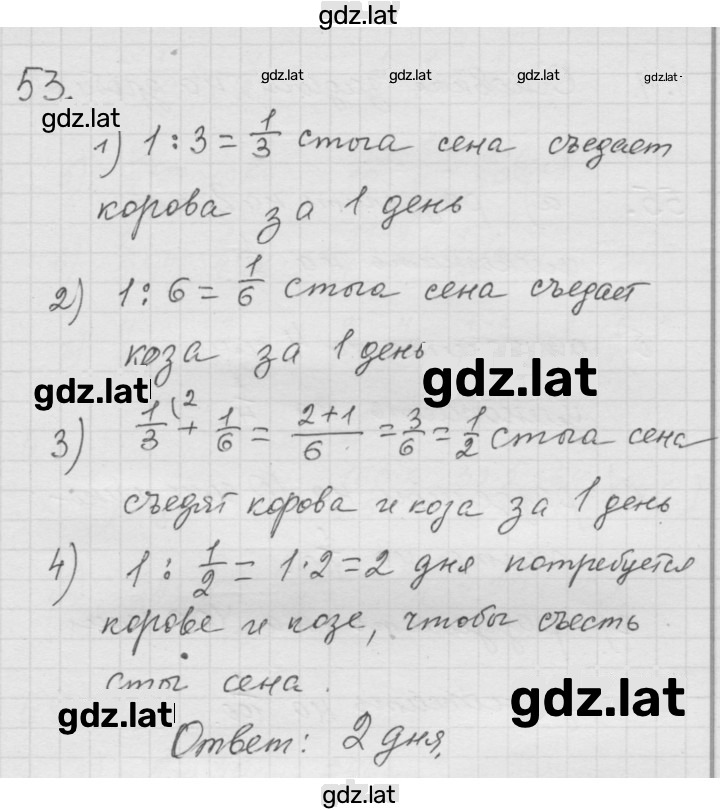 gdz.lat
53.
gdz.lat gdz.lat gdz.lat gdz.lat
gdz.lat
1) 1 : 3 = 1/3 стога сена съедает
корова за 1 день
2) 1 : 6 = 1/6 стога сена съедает
коза за 1 день
gdz.lat gdz.lat
3) 1/3 (2 + 1/6 = 2+1/6 = 3/6 = 1/2 стога сена
съедят корова и коза за 1 день
4) 1 : 1/2 = 1·2 = 2 дня потребуется
корове и козе, чтобы съесть
стог сена.
gdz.lat gdz.lat
Ответ: 2 дня.
gdz.lat